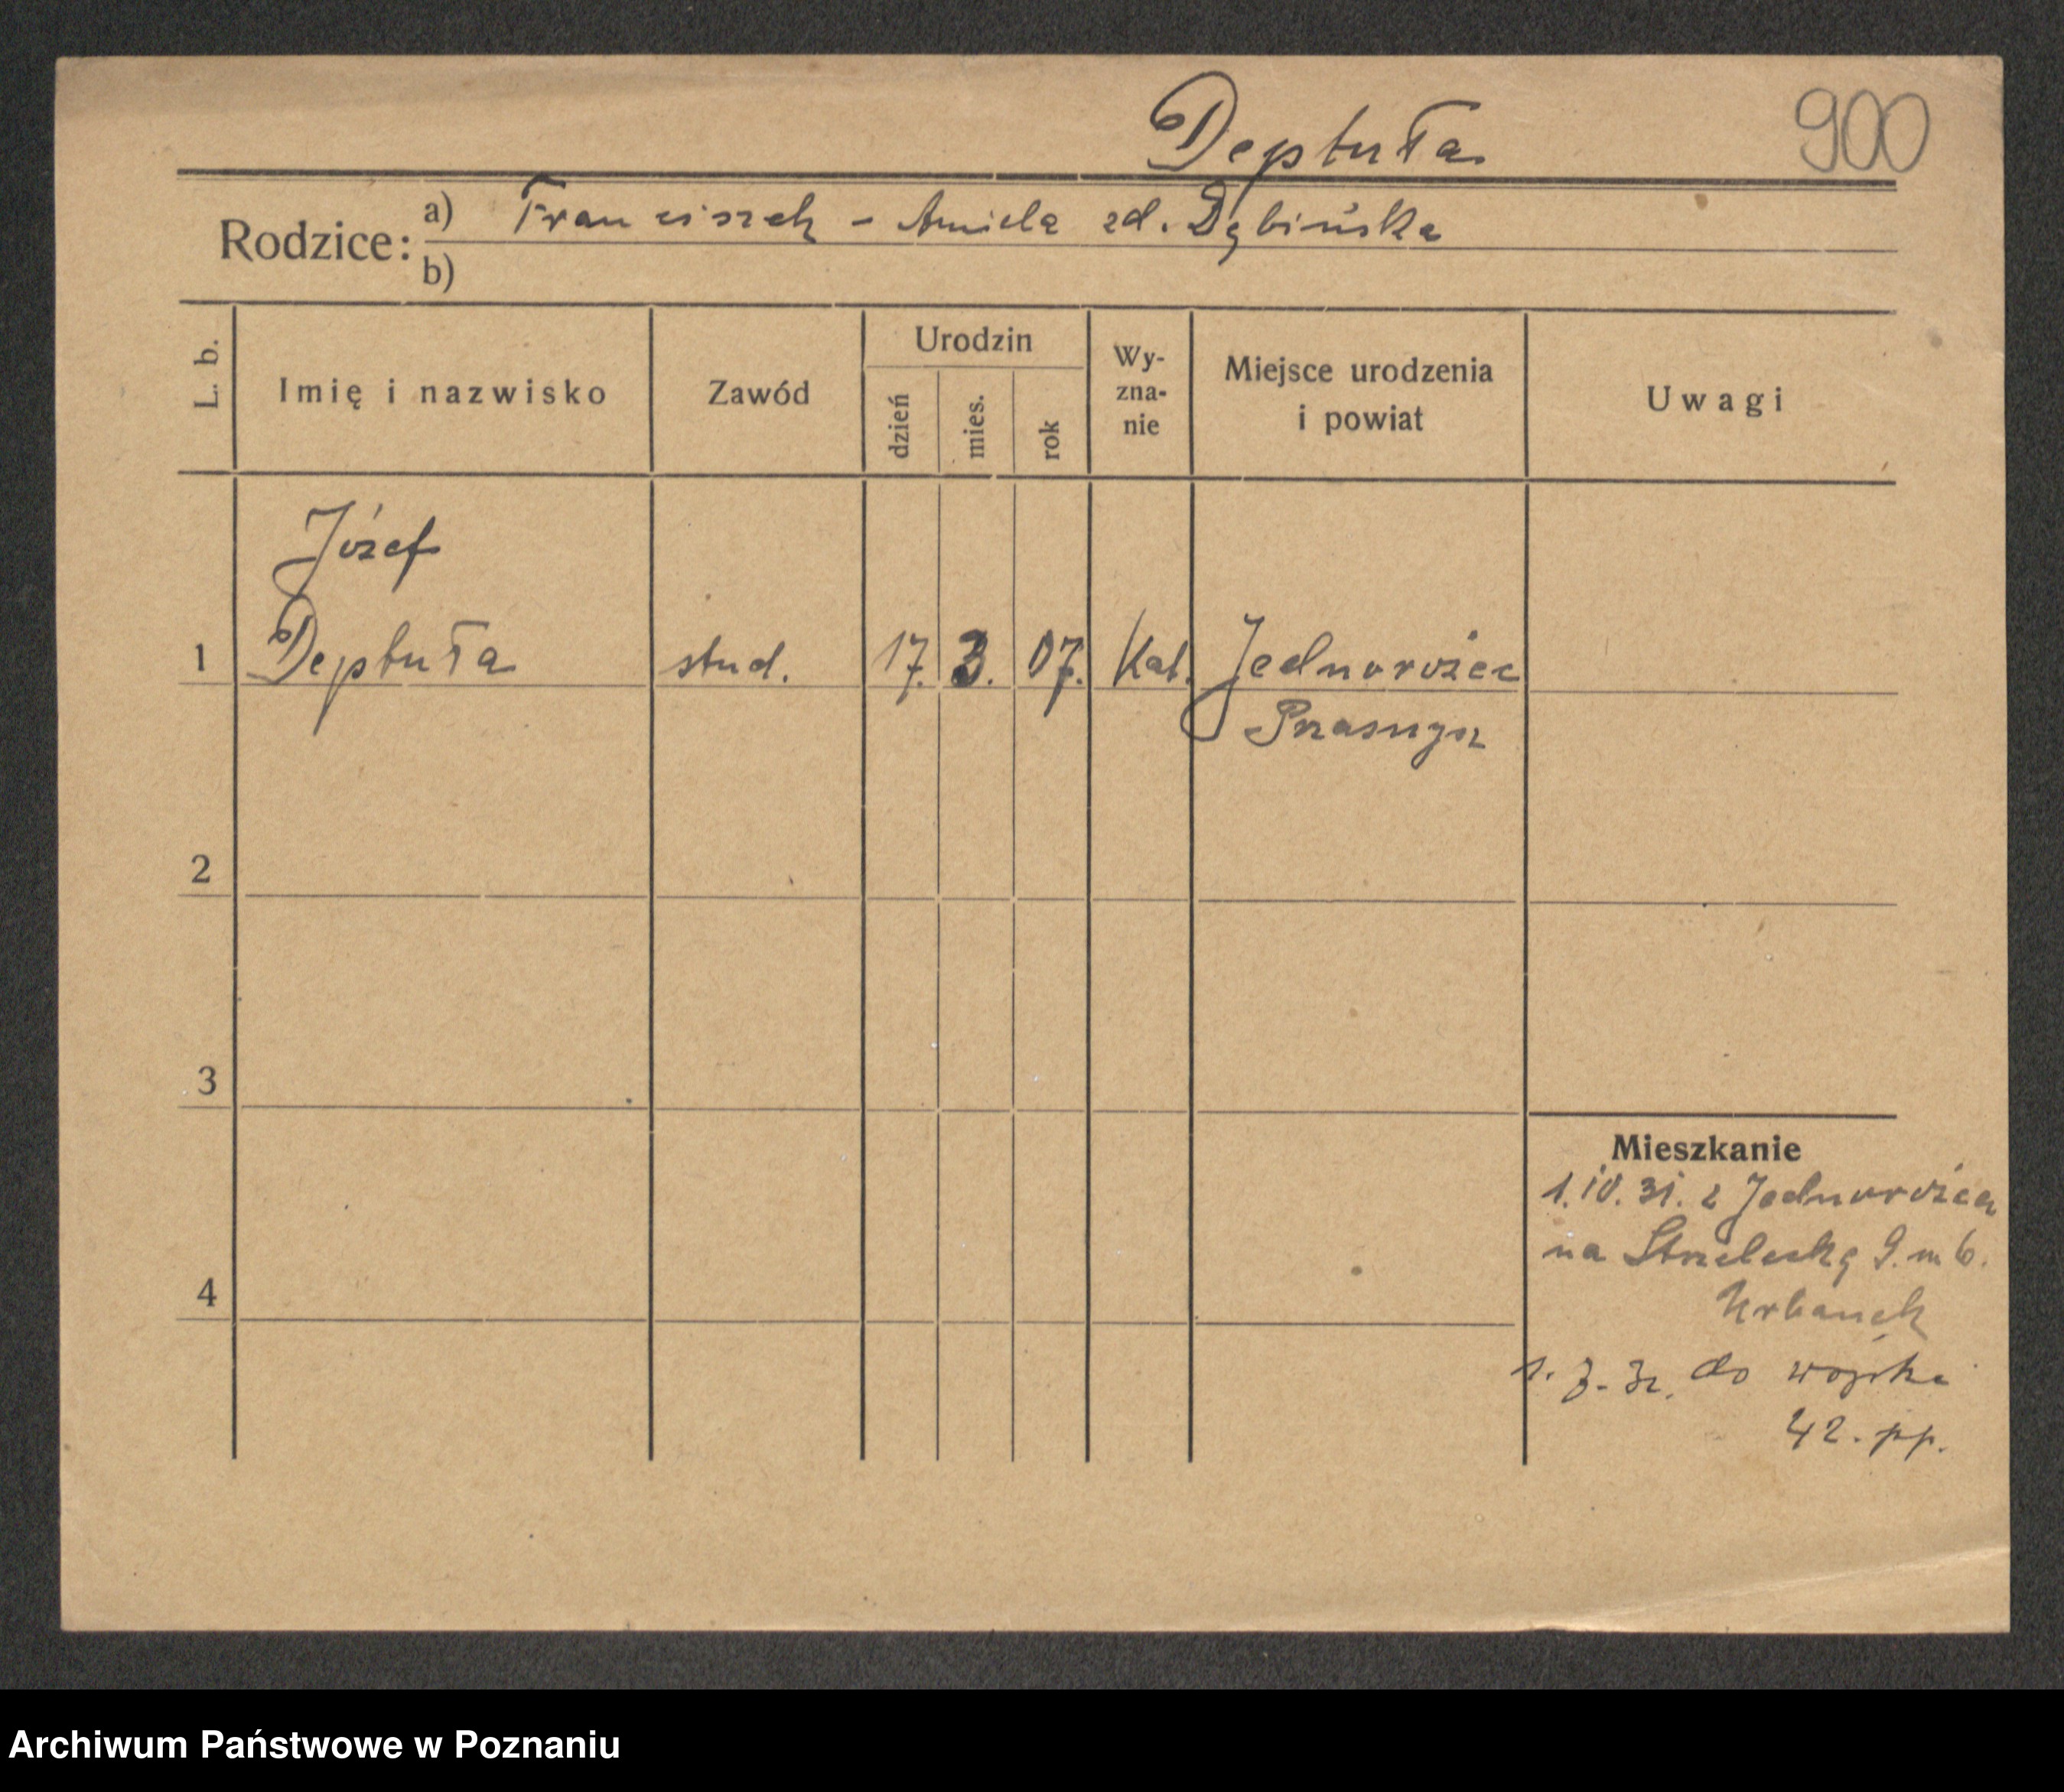 Deptuła 900
Rodzice: a) Franciszek – Aniela zd. Dębińska
b)
L. b. Imię i nazwisko Zawód Urodzin dzień mies. rok Wy-zna-nie Miejsce urodzenia i powiat Uwagi
Józef
1 Deptuła stud. 17. 3. 07. Kat. Jednorożec
Przasnysz
2
3
Mieszkanie
z Jednorożca
na Strzelecką 9. m 6.
4
Urbanek
do wojska
42. pp.
Archiwum Państwowe w Poznaniu